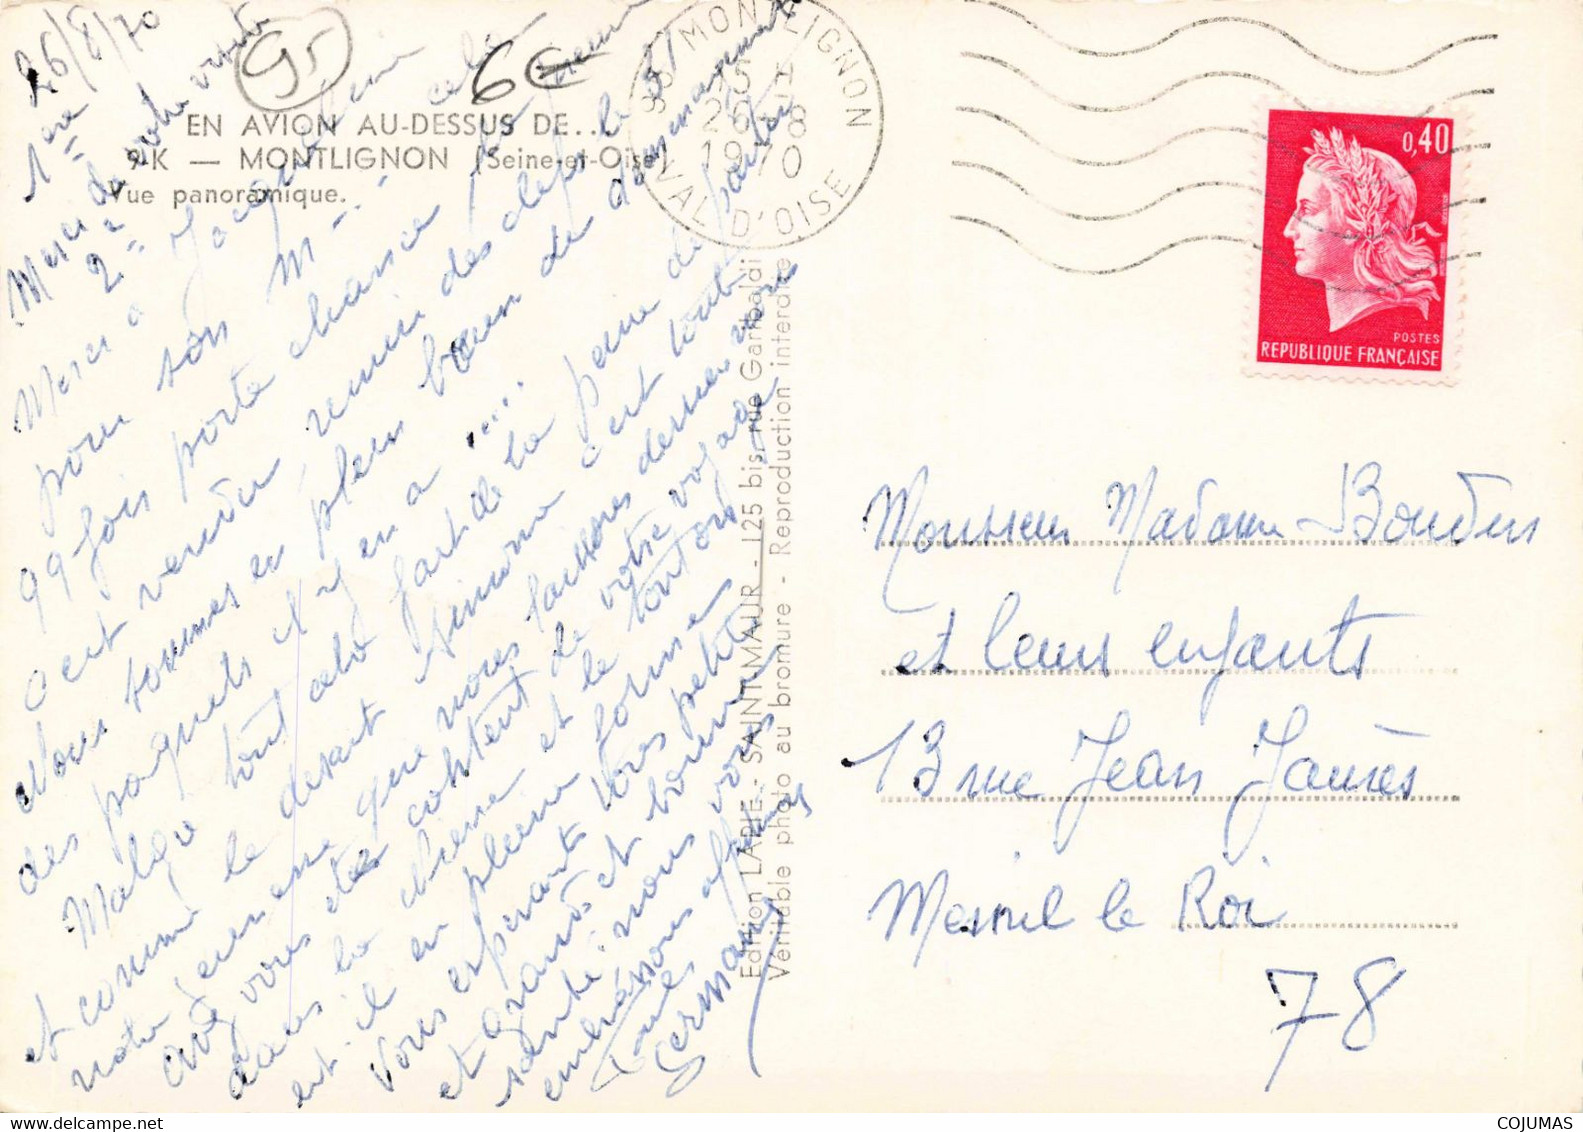 26/8/70
95
6€
1ère
Merci de votre visite
2e
Merci à Jacqueline
pour son M - cela
99 fois porte chance le neuf
c'est vendu remise des clefs le 31
Nous sommes en plein boum de déménagement
des paquets il y en a .... de partout
Malgré tout cela fait de la peine
et comme le disait Simone c'est tout
notre jeunesse que nous laissons derrière nous
avez vous été content de votre voyage
dans la et le tonton
est-il en pleine forme
Vous espérant tous petits
et grands et bonne
santé: nous vous
embrassons affectueusement
Germaine
EN AVION AU-DESSUS DE...
9 K — MONTLIGNON (Seine-et-Oise)
Vue panoramique.
95 MONTLIGNON
15 H
26 - 8
1970
VAL D'OISE
0,40
POSTES
REPUBLIQUE FRANÇAISE
Edition LAPIE - SAINT-MAUR - 125 bis, rue Garibaldi
Véritable photo au bromure - Reproduction interdite
Monsieur Madame
et leurs enfants
13 rue Jean Jaurès
Mesnil le Roi
78
COJUMAS